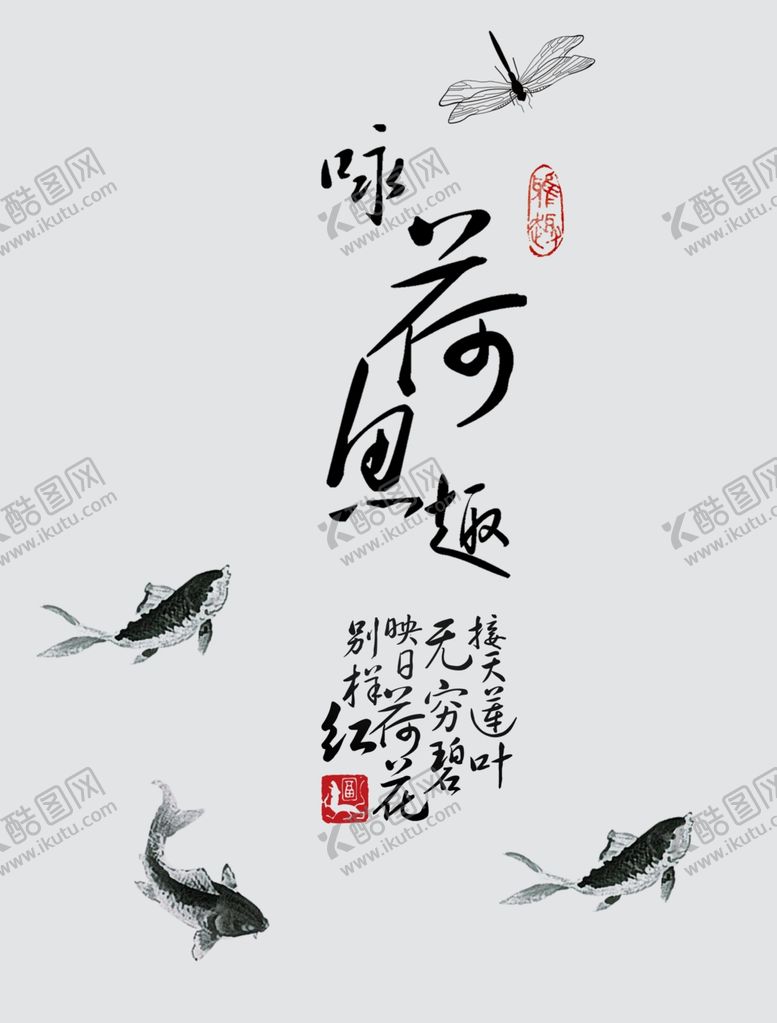 咏
荷
鱼
趣
雅趣
接天莲叶
无穷碧
映日荷花
别样红
酷图网
www.ikutu.com
酷图网
www.ikutu.com
酷图网
www.ikutu.com
酷图网
www.ikutu.com
酷图网
www.ikutu.com
酷图网
www.ikutu.com
酷图网
www.ikutu.com
酷图网
www.ikutu.com
酷图网
www.ikutu.com